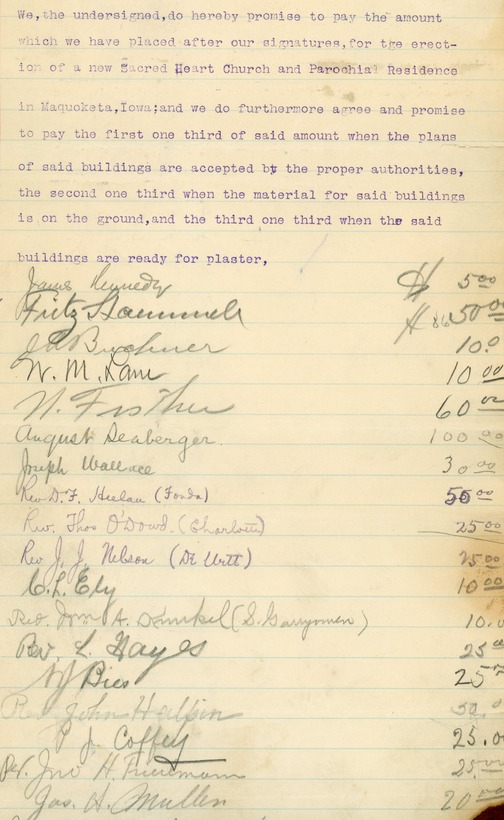 We, the undersigned,do hereby promise to pay the amount
which we have placed after our signatures,for tge erect-
ion of a new Sacred Heart Church and Parochial Residence
in Maquoketa,Iowa;and we do furthermore agree and promise
to pay the first one third of said amount when the plans
of said buildings are accepted by the proper authorities,
the second one third when the material for said buildings
is on the ground,and the third one third when the said
buildings are ready for plaster,
James Kennedy $ 5.00
Fritz $ 50.00
Buchner 10.0
W. M. Lam 10 00
N. 60 00
August Seaberger. 100 00
Joseph Wallace 30 00
Rev D.F. (Fonda) 50 00
Rev. Thos O'Dowd. (Charlotte) 25 00
Rev J. J. Nelson (De Witt) 25 00
C. L. Ely 10 00
Rev. A. Dunkel 10.0
Rev. L. Hayes 25
Bies 25
Rev. John Halpin 50.0
P J. Coffey 25.00
Rev. Jno H. 25.00
Jas. H. Mullin 20 00